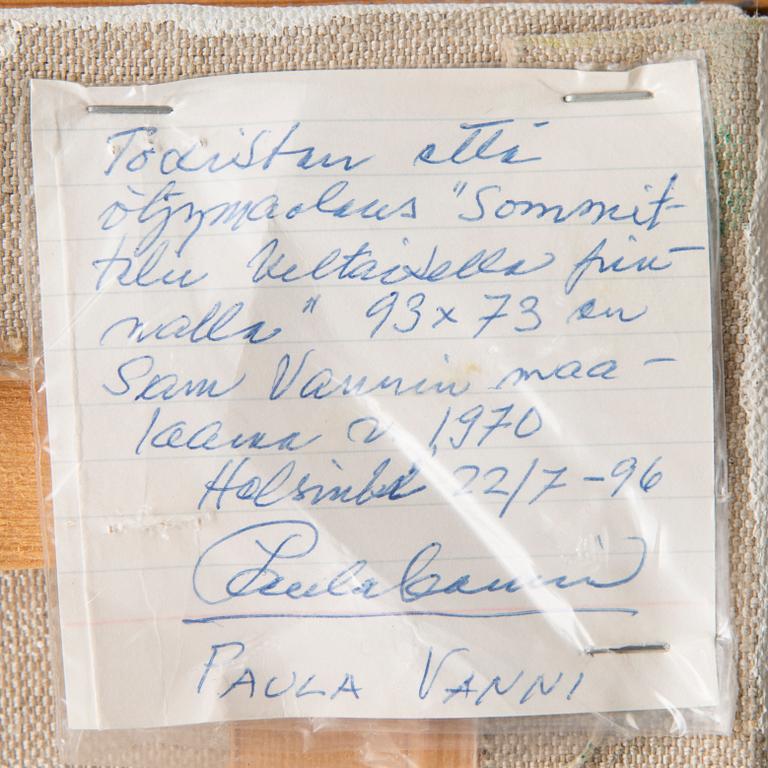 Todistan että
öljymaalaus "Sommit-
telu keltaisella pin-
nalla" 93x73 on
Sam Vannin maa-
laama v. 1970
Helsinki 22/7 -96
Paula Vanni
PAULA VANNI